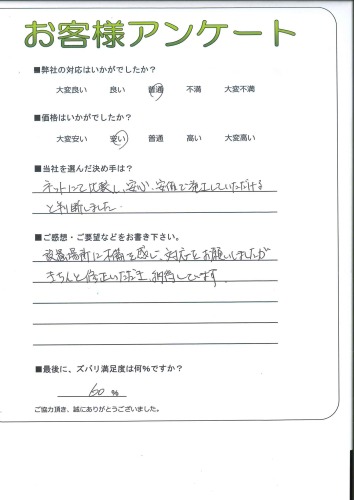 お客様アンケート
■弊社の対応はいかがでしたか？
大変良い 良い 普通 不満 大変不満
■価格はいかがでしたか？
大変安い 安い 普通 高い 大変高い
■当社を選んだ決め手は？
ネットにて比較し、安心、安価で施工していただける
と判断しました。
■ご感想・ご要望などをお書き下さい。
設置場所に不備を感じ、対応をお願いしましたが
きちんと修正いただき、納得しています。
■最後に、ズバリ満足度は何％ですか？
％
ご協力頂き、誠にありがとうございました。